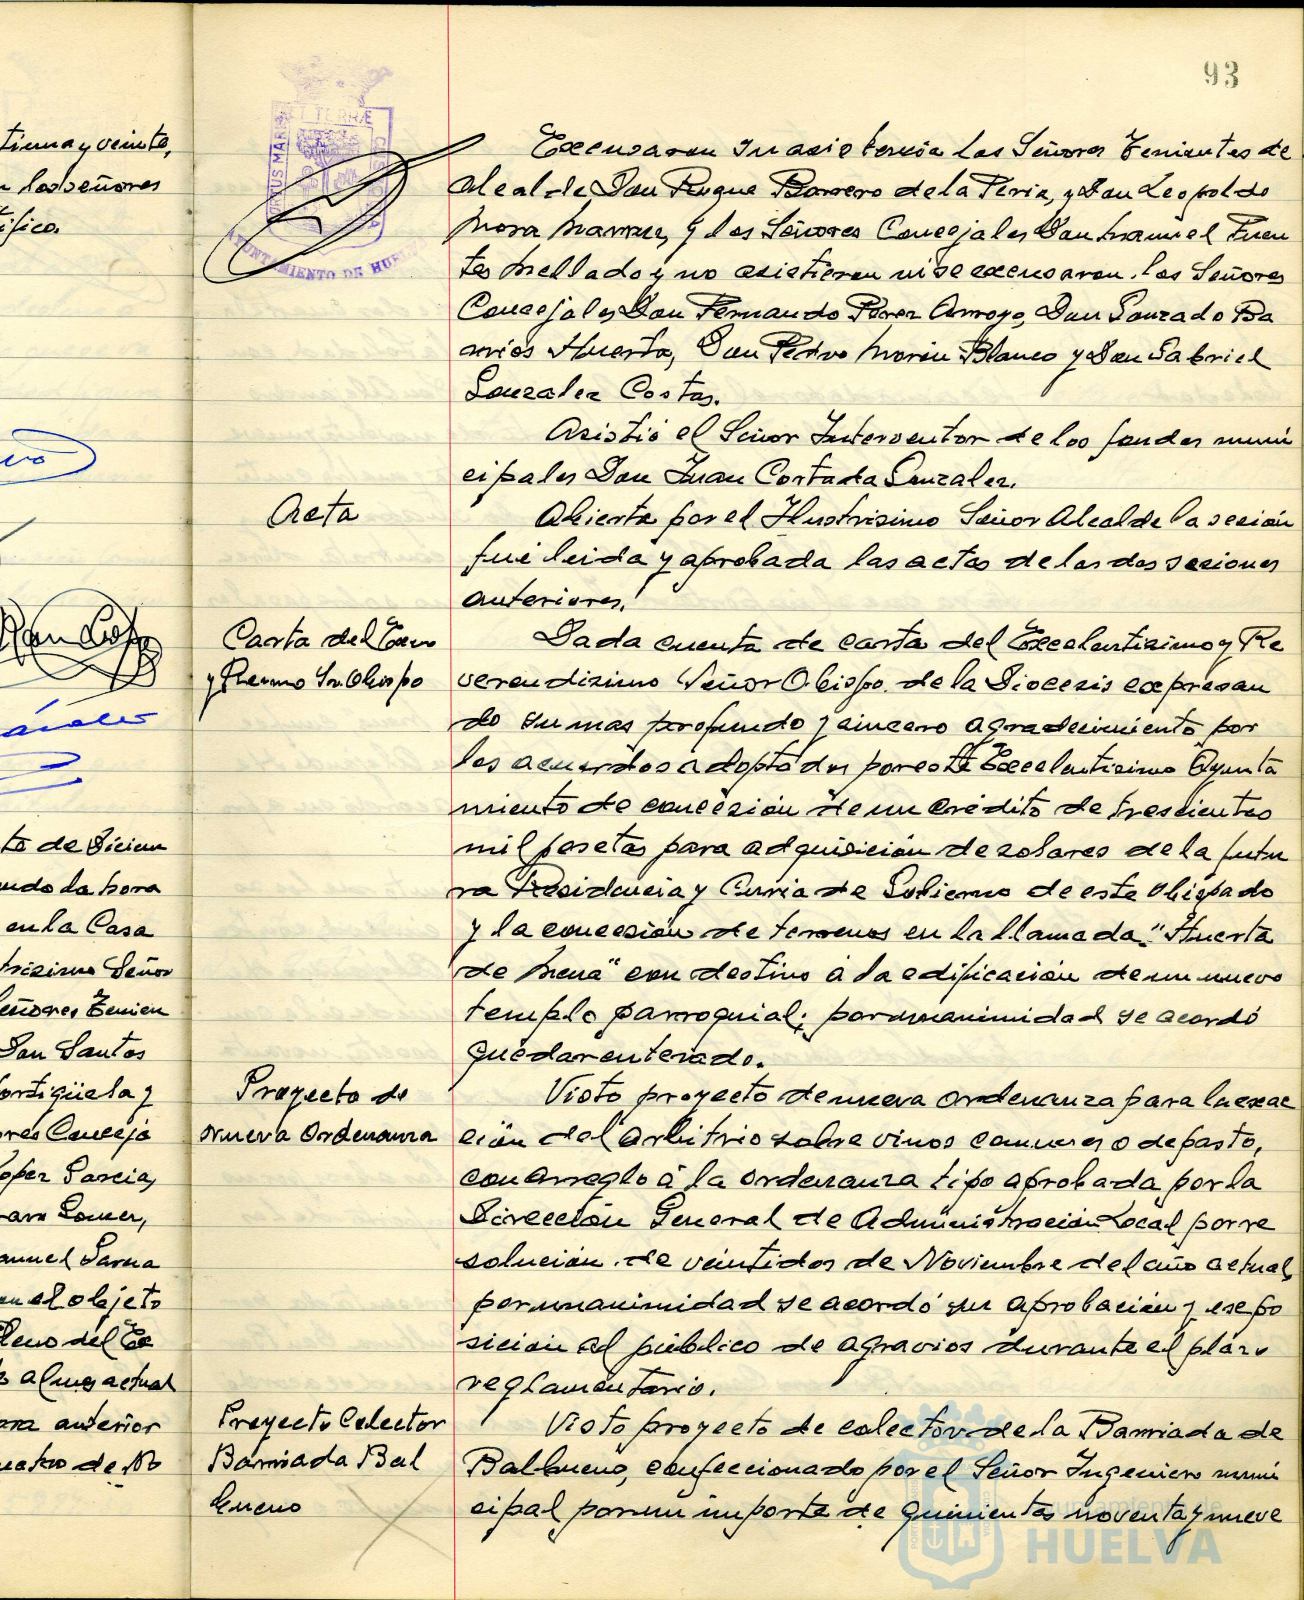 93
tima y veinte,
los señores
tifico.
ET TERRÆ
AYUNTAMIENTO DE HUELVA
Excusaron su asistencia los Señores Tenientes de
Alcalde Don Roque Barrero de la Feria, y Don Leopoldo
Mora Marruz, y los Señores Concejales Don Manuel Fuen
tes Mellado y no asistieron ni se excusaron los Señores
Concejales Don Fernando Pérez Arroyo, Don Gonzalo Ba
rrios Huerta, Don Pedro Morón Blanco y Don Gabriel
Gonzalez Costas.
Asistió el Señor Interventor de los fondos muni
cipales Don Juan Cortada Gonzalez.
Acta
Abierta por el Ilustrisimo Señor Alcalde la sesión
fué leida y aprobada las actas de las dos sesiones
anteriores.
Carta del Excmo
y Revmo Sr. Obispo
Dada cuenta de carta del Excelentisimo y Re
verendisimo Señor Obispo de la Diocesis expresan
do su mas profundo y sincero agradecimiento por
los acuerdos adoptados por este Excelentisimo Ayunta
miento de concesión de un crédito de trescientas
mil pesetas para adquisición de solares de la futu
ra Residencia y Curia de Gobierno de este Obispado
y la concesión de terrenos en la llamada "Huerta
de Mena" con destino á la edificación de un nuevo
templo parroquial; por unanimidad se acordó
quedar enterado.
Proyecto de
nueva Ordenanza
Visto proyecto de nueva ordenanza para la exac
ción del arbitrio sobre vinos comunes o de pasto,
con arreglo á la ordenanza tipo aprobada por la
Dirección General de Administración Local por re
solución de veintidos de Noviembre del año actual,
por unanimidad se acordó su aprobación y expo
sición al público de agravios durante el plazo
reglamentario.
Proyecto Colector
Barriada Bal
bueno
Visto proyecto de colector de la Barriada de
Balbueno, confeccionado por el Señor Ingeniero muni
cipal por un importe de quinientas noventa y nueve
to de Diciem
ndo la hora
en la Casa
trisimo Señor
eñores Tenien
Don Santos
ortigüela y
res Conceja
opez Garcia,
Gomez,
anuel
on el objeto
Pleno del Ex
al mes actual
ora anterior
uatro de No
Ayuntamiento de
HUELVA